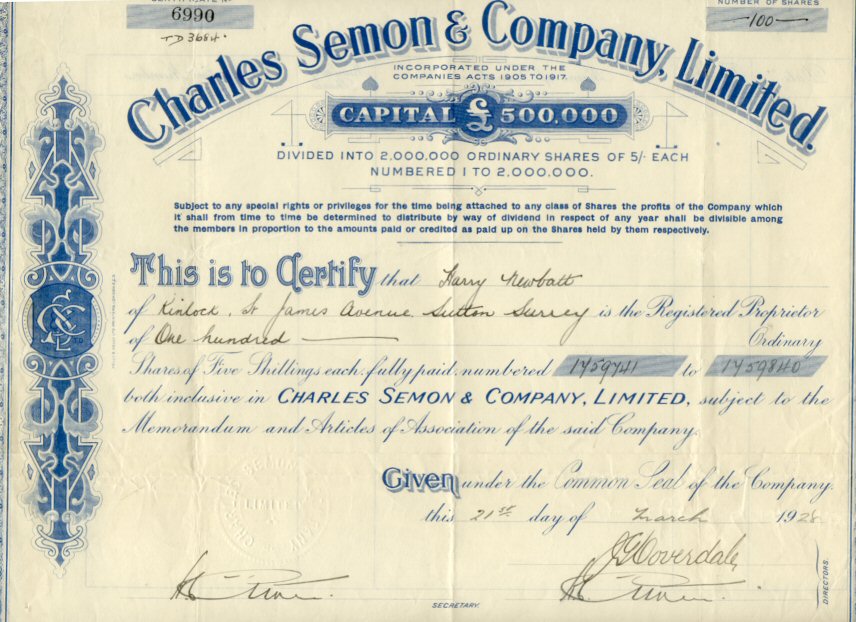 CERTIFICATE No
6990
TD3684.
NUMBER OF SHARES
—100—
Charles Semon & Company, Limited.
INCORPORATED UNDER THE
COMPANIES ACTS 1905 TO 1917.
CAPITAL £ 500,000
DIVIDED INTO 2,000,000 ORDINARY SHARES OF 5/- EACH
NUMBERED 1 TO 2,000,000.
Subject to any special rights or privileges for the time being attached to any class of Shares the profits of the Company which
it shall from time to time be determined to distribute by way of dividend in respect of any year shall be divisible among
the members in proportion to the amounts paid or credited as paid up on the Shares held by them respectively.
This is to Certify that Harry Newbatt
of Kinlock, St James Avenue Sutton Surrey is the Registered Proprietor
of One hundred — Ordinary
Shares of Five Shillings each, fully paid, numbered 1759741 to 1759840
both inclusive in CHARLES SEMON & COMPANY, LIMITED, subject to the
Memorandum and Articles of Association of the said Company.
Given under the Common Seal of the Company,
this 21st day of March 1928
SECRETARY.
DIRECTORS.